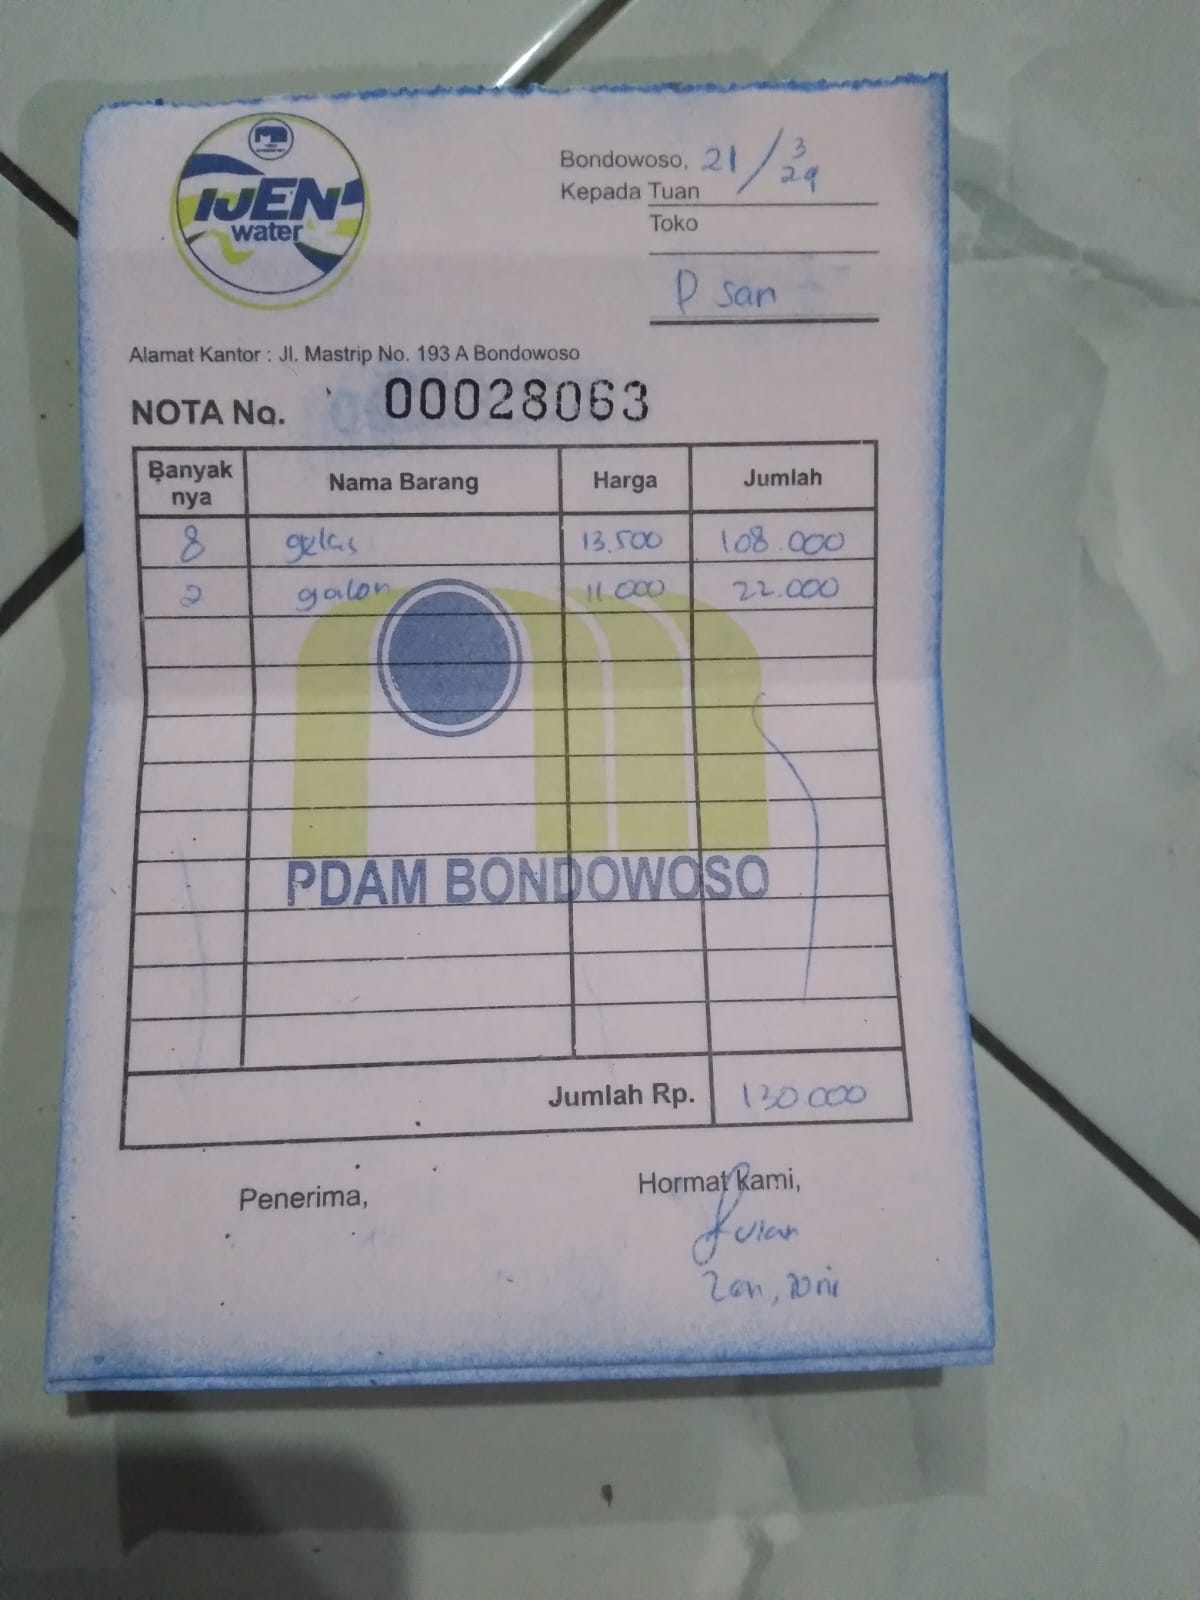 IJEN
water
Bondowoso, 21/3
24
Kepada Tuan
Toko
P San
Alamat Kantor : Jl. Mastrip No. 193 A Bondowoso
NOTA No. 00028063
Banyak nya Nama Barang Harga Jumlah
8 gelas 13.500 108.000
2 galon 11.000 22.000
PDAM BONDOWOSO
Jumlah Rp. 130.000
Penerima, Hormat kami,